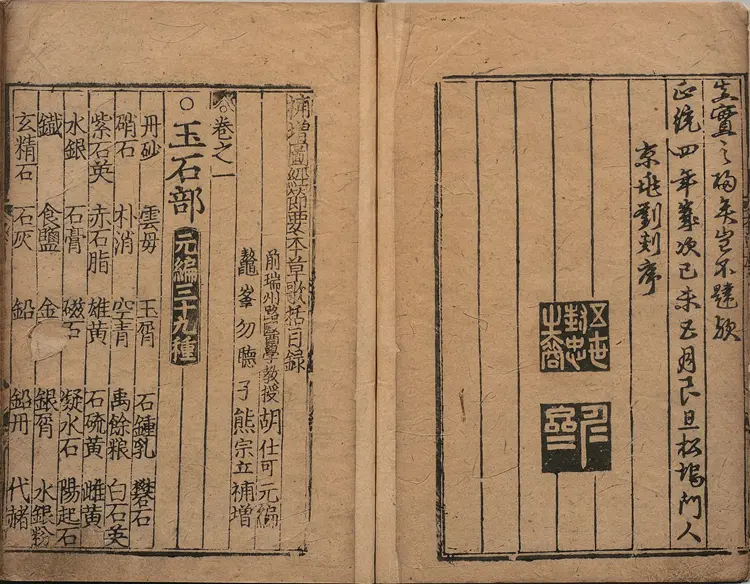 之揚矣豈不韙歟
正統四年歲次己未五月良旦松塢門人
京兆劉剡序
五世
封忠
之裔
補增圖經節要本草歌括目錄
前瑞州路醫學教授胡仕可元編
鰲峯勿聽子熊宗立補增
卷之一
○玉石部 元編三十九種
丹砂 雲母 玉屑 石鍾乳 礬石
硝石 朴消 空青 禹餘粮 白石英
紫石英 赤石脂 雄黃 石硫黃 雌黃
水銀 石膏 磁石 凝水石 陽起石
鐵 食鹽 金 銀屑 水銀粉
玄精石 石灰 鉛 鉛丹 代赭